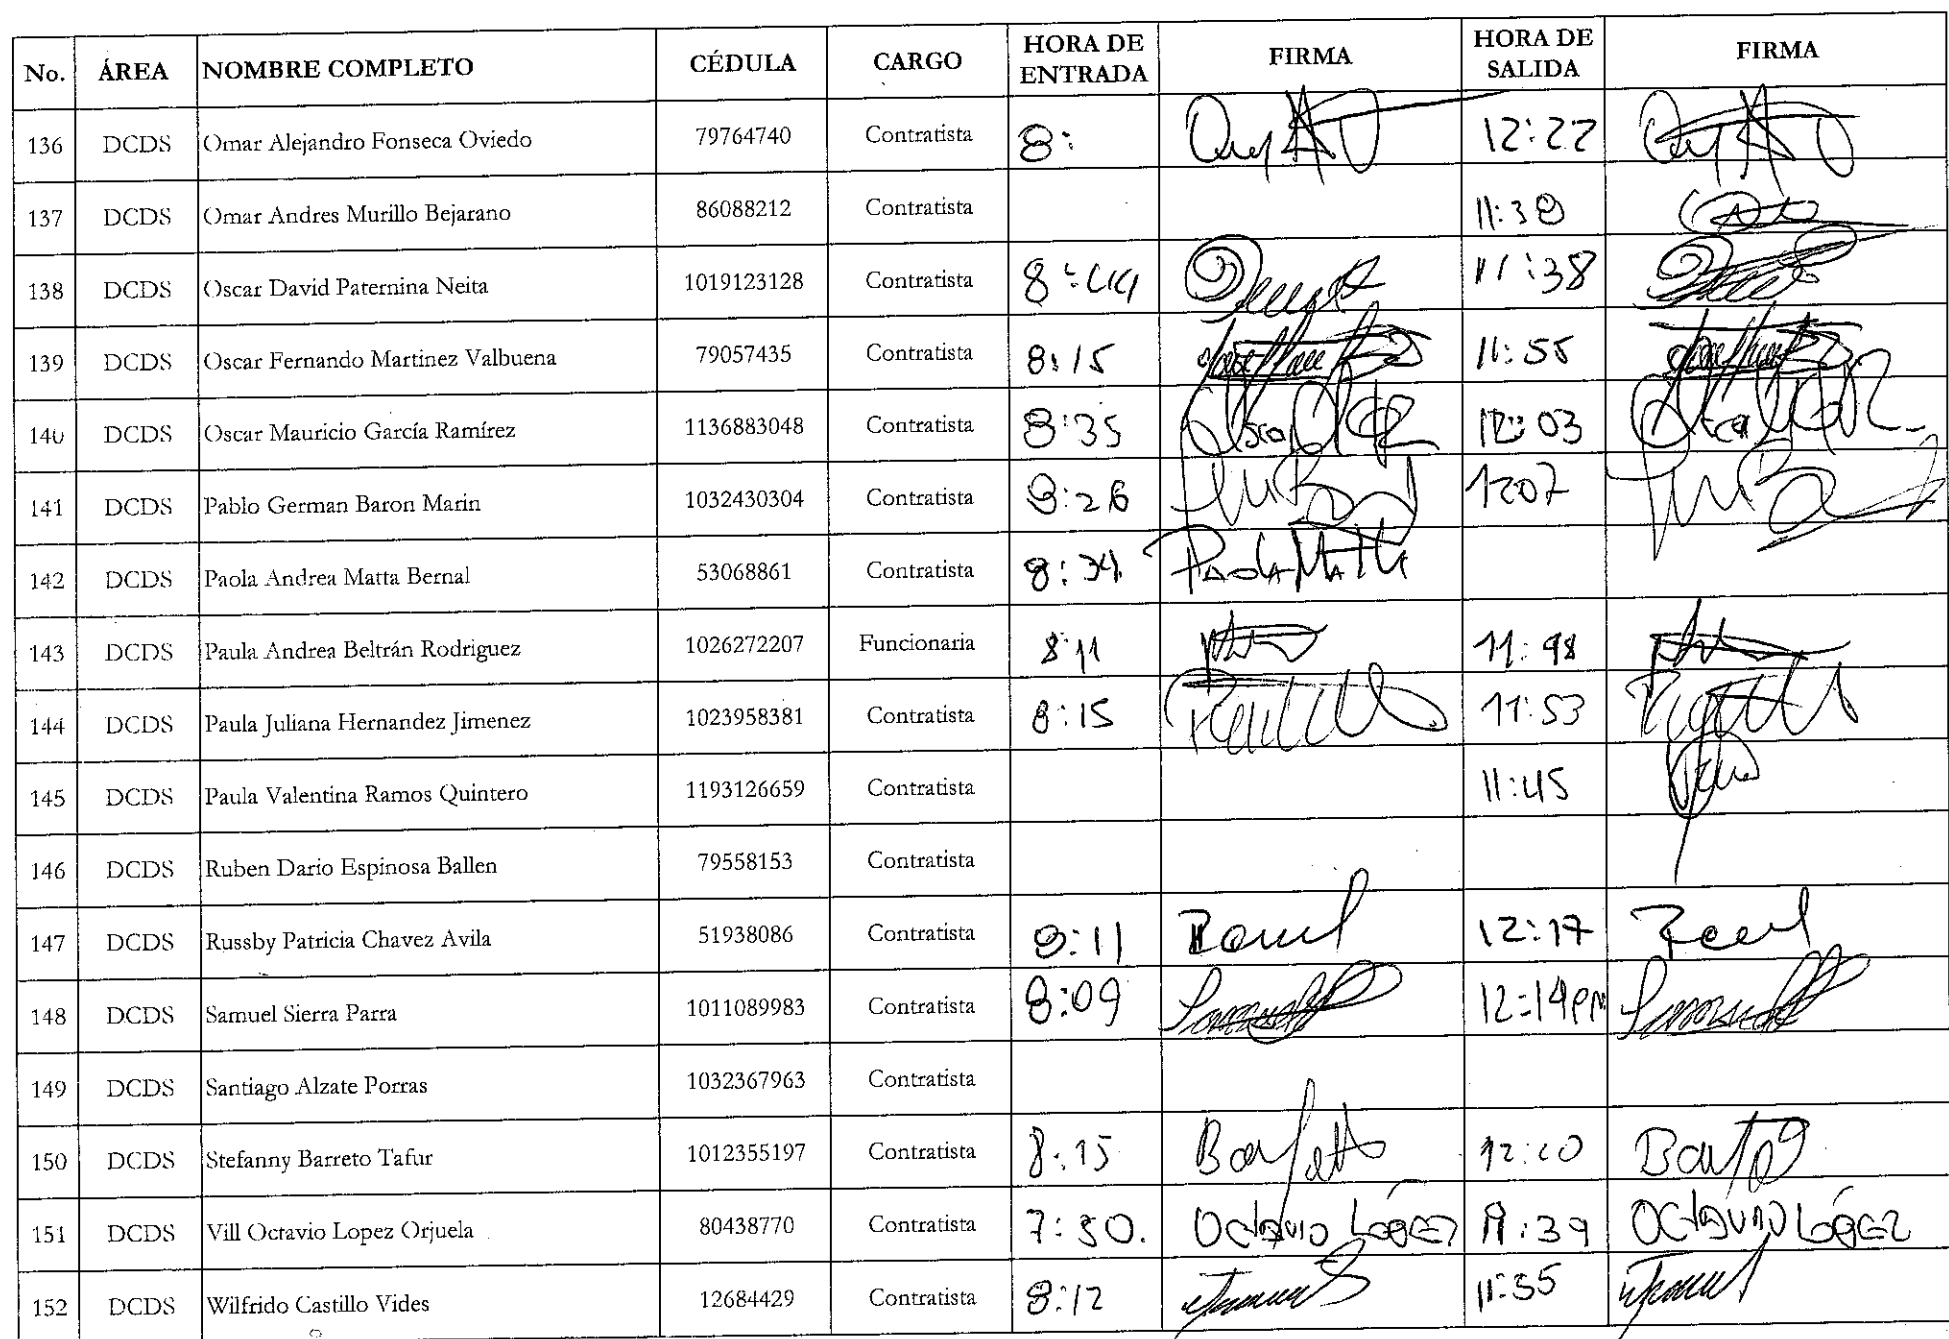 No. ÁREA NOMBRE COMPLETO CÉDULA CARGO HORA DE ENTRADA FIRMA HORA DE SALIDA FIRMA
136 DCDS Omar Alejandro Fonseca Oviedo 79764740 Contratista 8: 12:22
137 DCDS Omar Andres Murillo Bejarano 86088212 Contratista 11:38
138 DCDS Oscar David Paternina Neita 1019123128 Contratista 8:44 11:38
139 DCDS Oscar Fernando Martinez Valbuena 79057435 Contratista 8:15 11:55
140 DCDS Oscar Mauricio García Ramírez 1136883048 Contratista 8:35 12:03
141 DCDS Pablo German Baron Marin 1032430304 Contratista 1207
142 DCDS Paola Andrea Matta Bernal 53068861 Contratista Paola Matta
143 DCDS Paula Andrea Beltrán Rodriguez 1026272207 Funcionaria 8:11 11:48
144 DCDS Paula Juliana Hernandez Jimenez 1023958381 Contratista 8:15 11:53
145 DCDS Paula Valentina Ramos Quintero 1193126659 Contratista 11:45
146 DCDS Ruben Dario Espinosa Ballen 79558153 Contratista
147 DCDS Russby Patricia Chavez Avila 51938086 Contratista 12:17
148 DCDS Samuel Sierra Parra 1011089983 Contratista 8:09 12:14PM
149 DCDS Santiago Alzate Porras 1032367963 Contratista
150 DCDS Stefanny Barreto Tafur 1012355197 Contratista 8:15 12:20
151 DCDS Vill Octavio Lopez Orjuela 80438770 Contratista Octavio López 11:39 Octavio López
152 DCDS Wilfrido Castillo Vides 12684429 Contratista 8:12 11:55